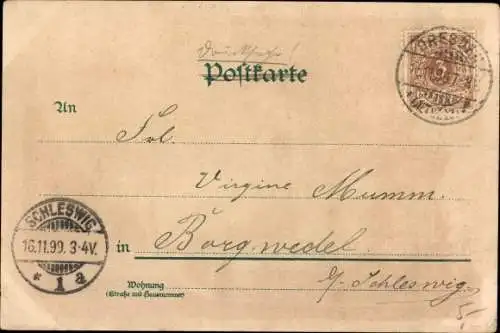 Drucksache!
Postkarte
An
Frl.
Virgine Mumm.
in Borgwedel
b/Schleswig
Wohnung
(Straße und Hausnummer)
SCHLESWIG
16.11.99. 3-4V.
* 1 a
DRESDEN
3
5,-